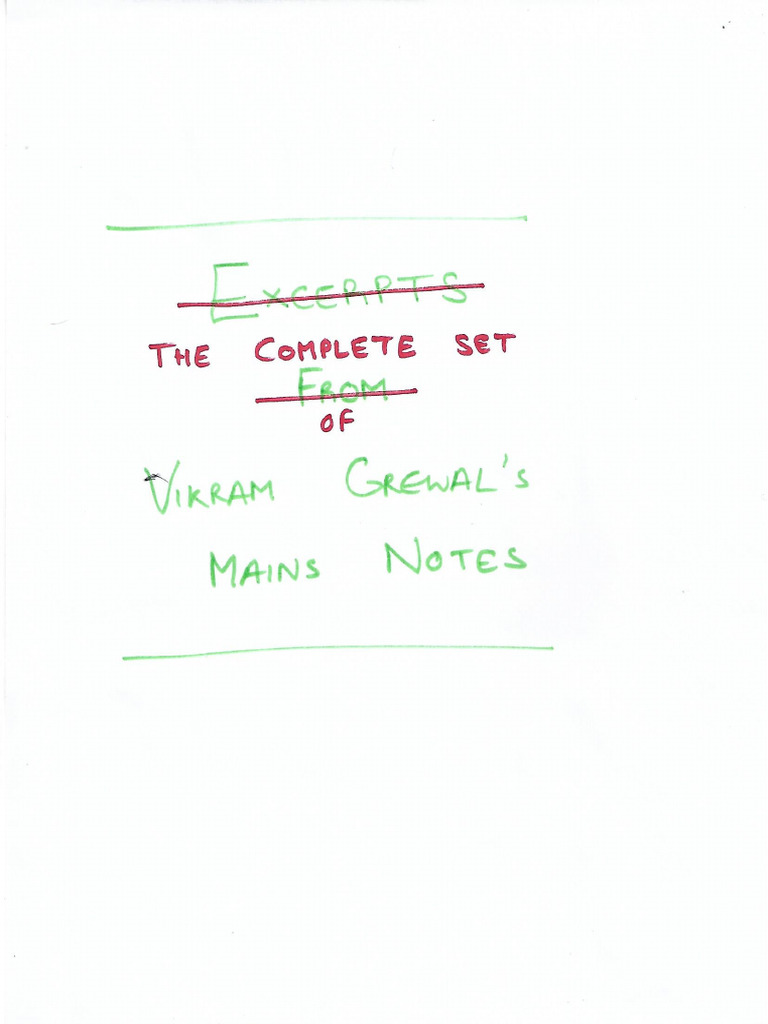 Excerpts
The Complete Set
From
of
Vikram Grewal's
Mains Notes